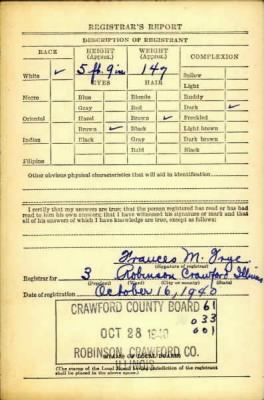 REGISTRAR'S REPORT
DESCRIPTION OF REGISTRANT
RACE HEIGHT (Approx.) WEIGHT (Approx.) COMPLEXION
White ✓ 5 ft. 9 in 147 Sallow
EYES HAIR Light
Negro Blue Blonde Ruddy
Gray Red Dark ✓
Oriental Hazel Brown Freckled
Brown ✓ Black Light brown
Indian Black Gray Dark brown
Bald Black
Filipino
Other obvious physical characteristics that will aid in identification
I certify that my answers are true; that the person registered has read or has had
read to him his own answers; that I have witnessed his signature or mark and that
all of his answers of which I have knowledge are true, except as follows:
Frances M.
(Signature of registrar)
Registrar for 3 Robinson Crawford Illinois
(Precinct) (Ward) (City or county) (State)
Date of registration October 16, 1940
CRAWFORD COUNTY BOARD 61
033
OCT 28 1940 601
ROBINSON, CRAWFORD CO.
STAMP OF LOCAL BOARD
ILLINOIS
(The stamp of the Local Board having jurisdiction of the registrant
shall be placed in the above space.)